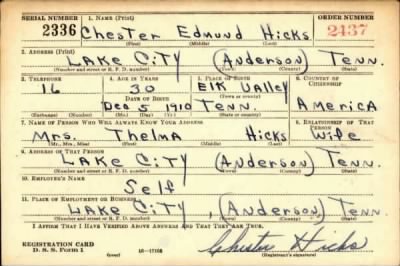 SERIAL NUMBER 1. NAME (Print) ORDER NUMBER
2336 Chester Edmund Hicks 2437
(First) (Middle) (Last)
2. ADDRESS (Print)
LAKE CITY (Anderson) Tenn.
(Number and street or R. F. D. number) (Town) (County) (State)
3. TELEPHONE 4. AGE IN YEARS 5. PLACE OF BIRTH 6. COUNTRY OF CITIZENSHIP
16 30 Elk Valley
(Town or county)
DATE OF BIRTH
Dec 5 1910 Tenn. America
(Exchange) (Number) (Mo.) (Day) (Yr.) (State or country)
7. NAME OF PERSON WHO WILL ALWAYS KNOW YOUR ADDRESS 8. RELATIONSHIP OF THAT PERSON
Mrs. Thelma Hicks Wife
(Mr., Mrs., Miss) (First) (Middle) (Last)
9. ADDRESS OF THAT PERSON
LAKE CITY (Anderson) Tenn.
(Number and street or R. F. D. number) (Town) (County) (State)
10. EMPLOYER'S NAME
Self
11. PLACE OF EMPLOYMENT OR BUSINESS
LAKE CITY, (Anderson) Tenn.
(Number and street or R. F. D. number) (Town) (County) (State)
I AFFIRM THAT I HAVE VERIFIED ABOVE ANSWERS AND THAT THEY ARE TRUE.
REGISTRATION CARD
D. S. S. Form 1 (over) Chester Hicks
(Registrant's signature)